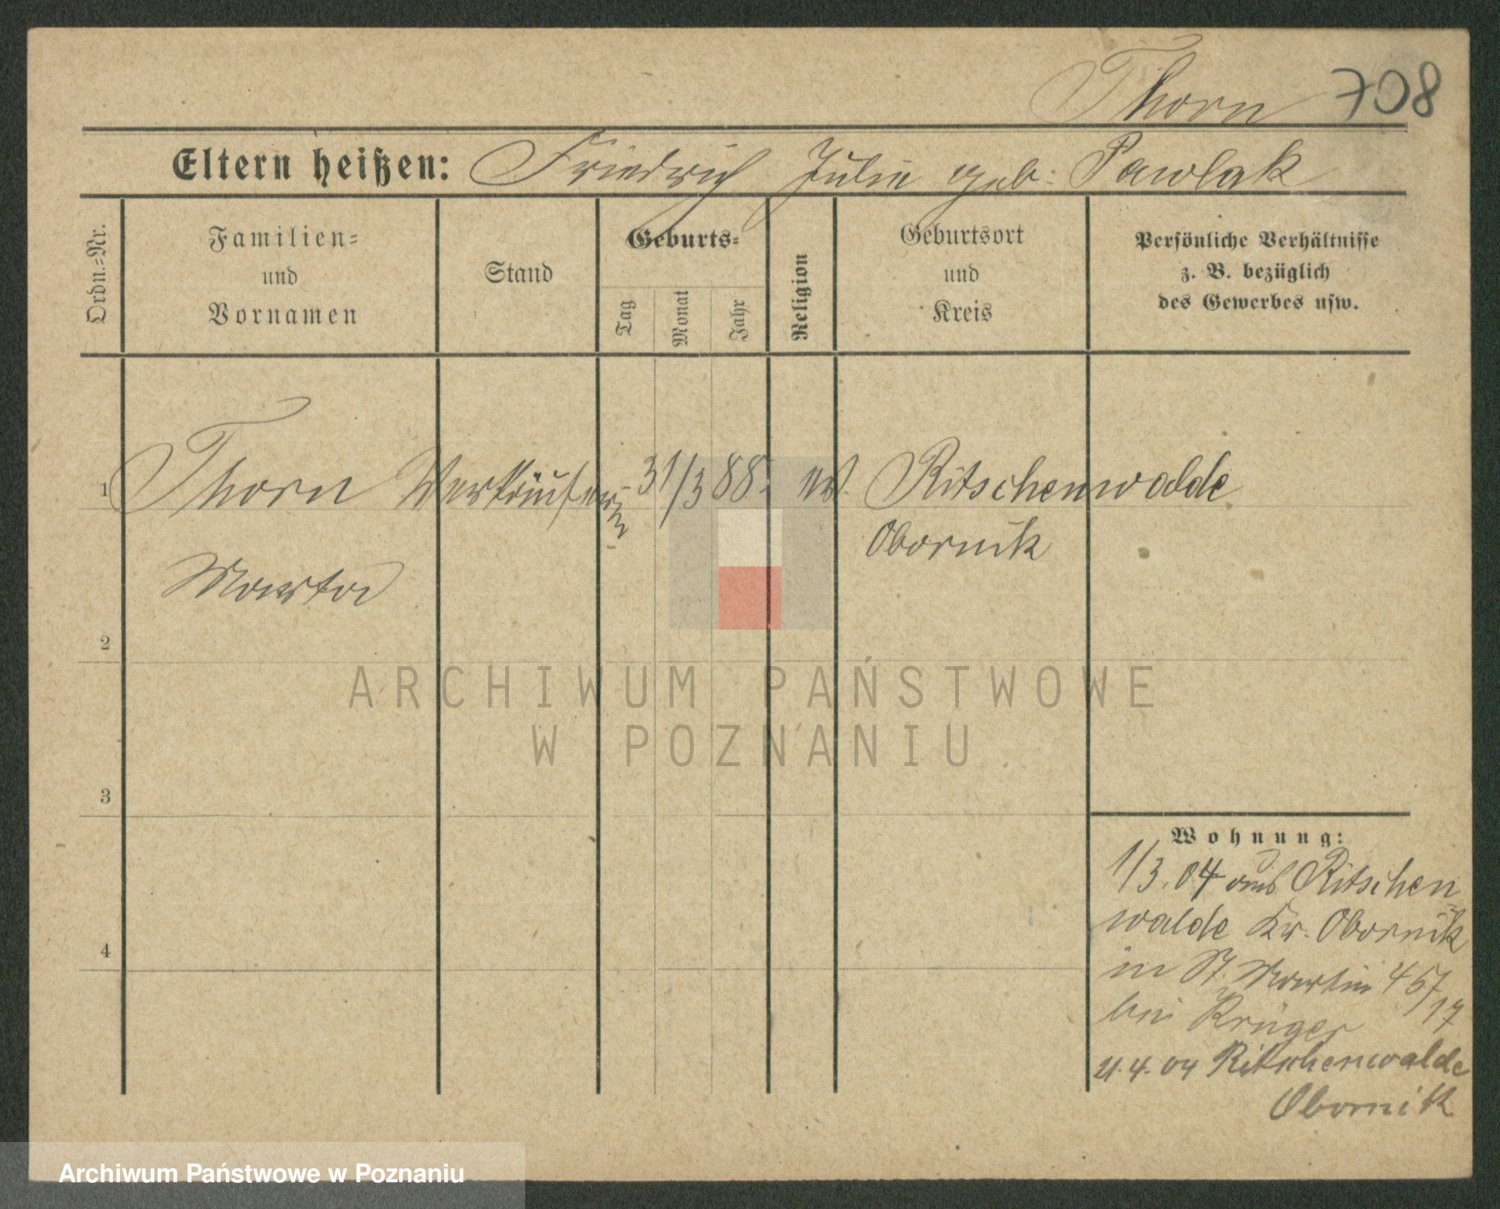 Thorn 708
Eltern heißen: Friedrich Julie geb: Pawlak
Ordn.-Nr.
Familien-
und
Vornamen
Stand
Geburts-
Tag
Monat
Jahr
Religion
Geburtsort
und
Kreis
Persönliche Verhältnisse
z. B. bezüglich
des Gewerbes usw.
1 Thorn Verkäuferin 31/3 88. ev. Ritschenwalde
Obornik
Martha
2
3
4
ARCHIWUM PAŃSTWOWE
W POZNANIU
Wohnung:
1/3.04 aus Ritschen-
walde Kr. Obornik
in St. Martin 457/17
bei Krüger
21.4.04 Ritschenwalde
Obornik
Archiwum Państwowe w Poznaniu